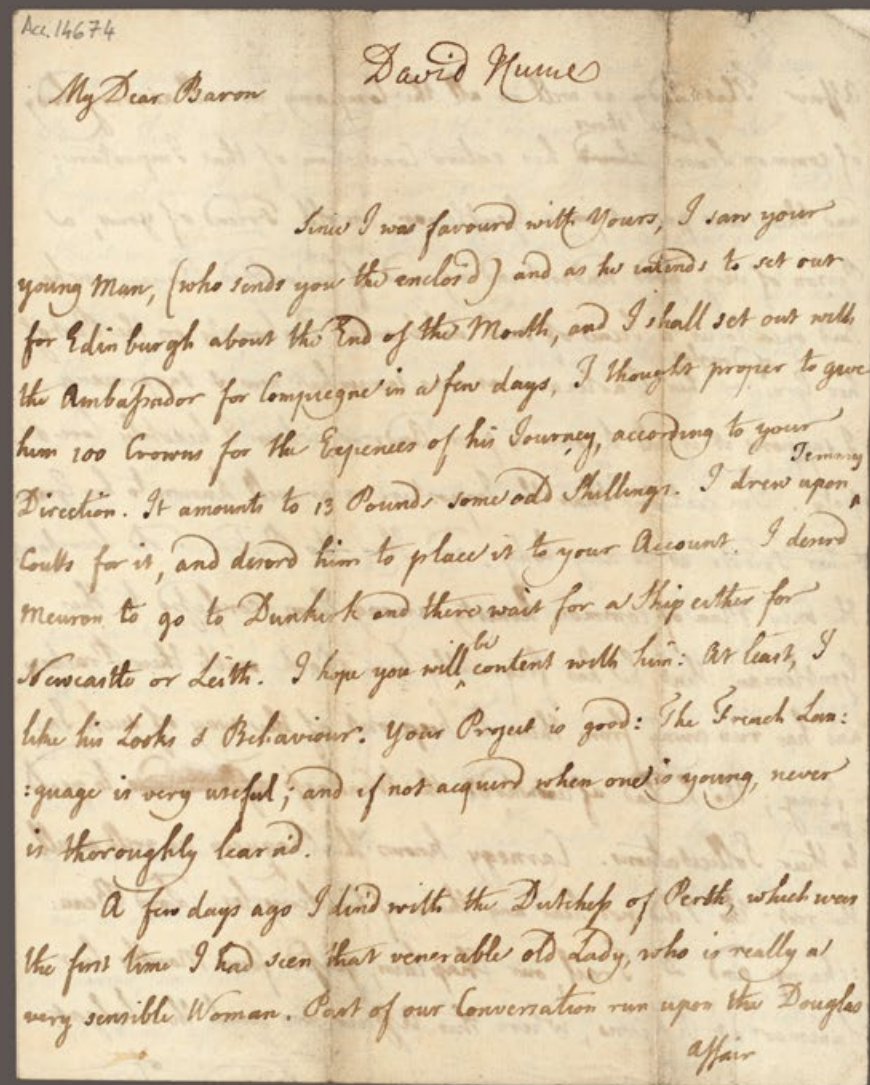 Acc. 14674
David Hume
My Dear Baron
Since I was favourd with Yours, I saw your
young Man, (who sends you the enclos'd) and as he intends to set out
for Edinburgh about the End of the Month, and I shall set out with
the Ambassador for Compiegne in a few days, I thought proper to give
him 100 Crowns for the Expences of his Journey, according to your
Direction. It amounts to 13 Pounds some odd Shillings. I drew upon ^ Jemmy
Coutts for it, and desird him to place it to your Account. I desird
Meuron to go to Dunkirk and there wait for a Ship either for
Newcastle or Leith. I hope you will ^ be content with him: At least, I
like his Looks & Behaviour. Your Project is good: The French Lan:
:guage is very useful; and if not acquird when one is young, never
is thoroughly learn'd.
A few days ago I dind with the Dutchess of Perth, which was
the first time I had seen that venerable old Lady, who is really a
very sensible Woman. Part of our Conversation run upon the Douglas
Affair